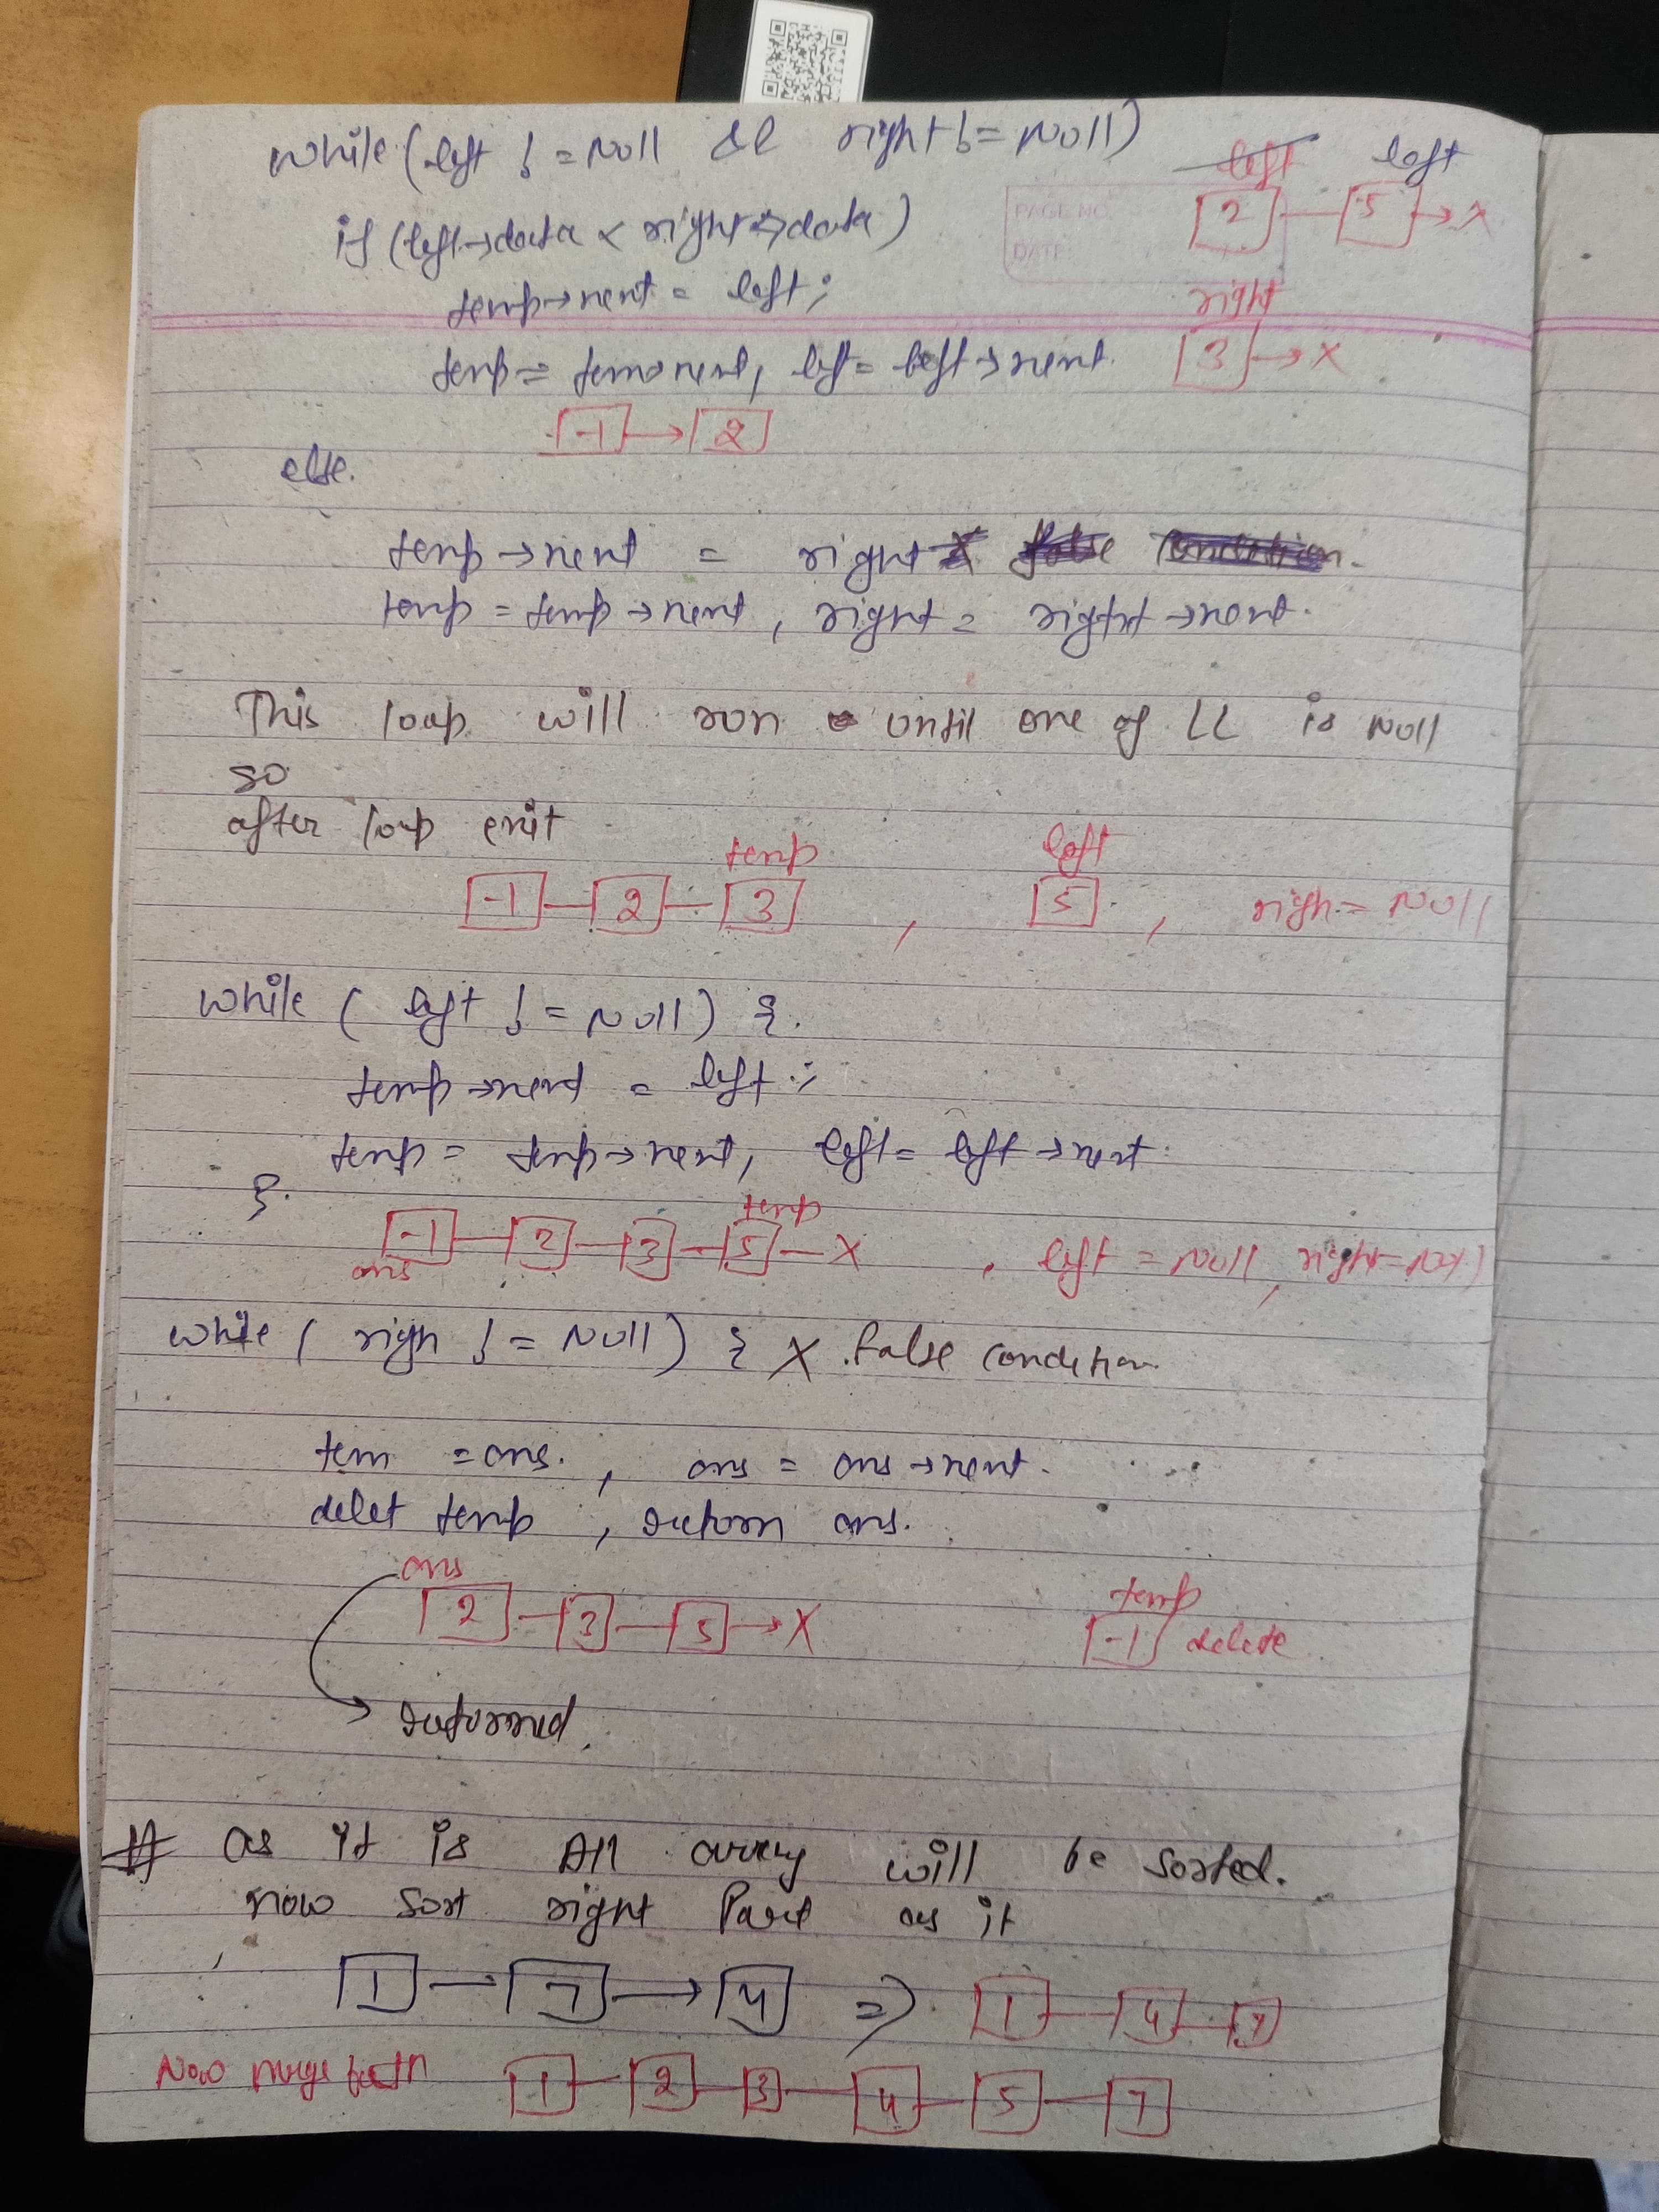 while (left != NULL && right != NULL)
left left
PAGE NO.
DATE
2 5 → X
if (left→data < right→data)
temp→next = left;
right
3 → X
temp = temp→next, left = left→next.
-1 → 2
else.
temp→next = right
temp = temp→next, right = right→next.
This loop will run until one of LL is NULL
so
after loop exit
temp left
-1 2 3 , 5 , righ = NULL
while ( left != NULL) {.
temp→next = left;
temp = temp→next, left = left→next.
}.
temp
-1 2 3 5 X , left = NULL, right = NULL
ans
while ( righ != NULL) { X false condition.
tem = ans. , ans = ans→next.
delet temp , return ans.
ans temp
2 3 5 → X -1 delete
returned.
# as it is All array will be sorted.
now sort right Part as it
1 → 7 → 4 => 1 4 7
Now merge both 1 2 3 4 5 7